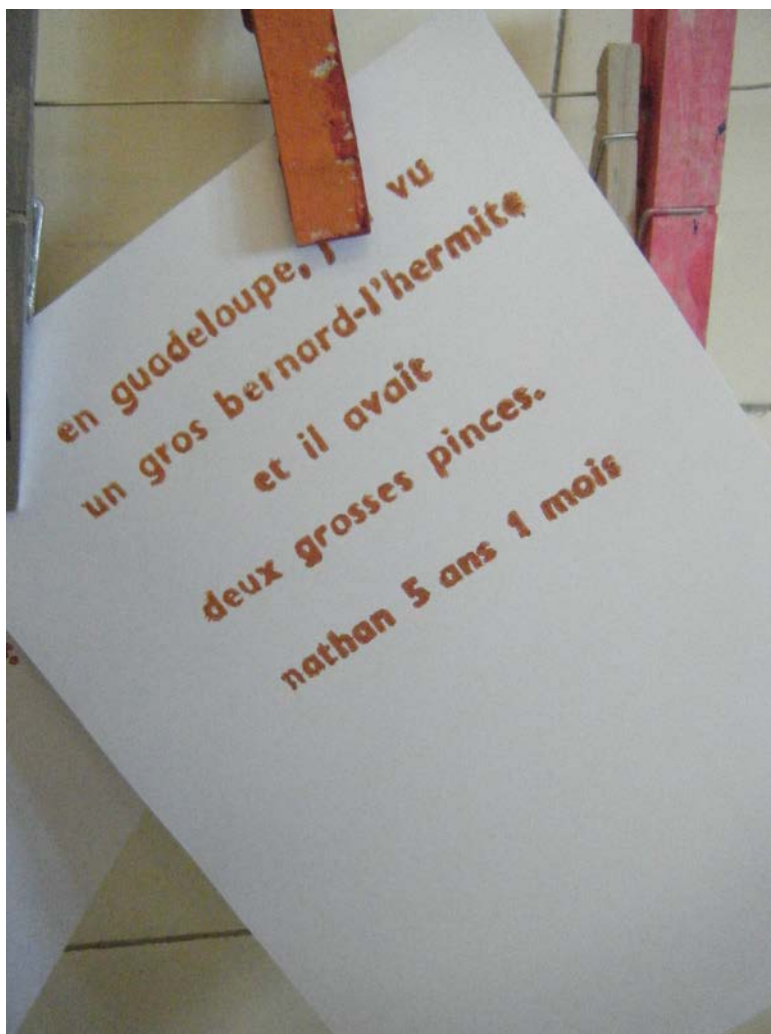 en guadeloupe, j' vu
un gros bernard-l'hermite
et il avait
deux grosses pinces.
nathan 5 ans 1 mois